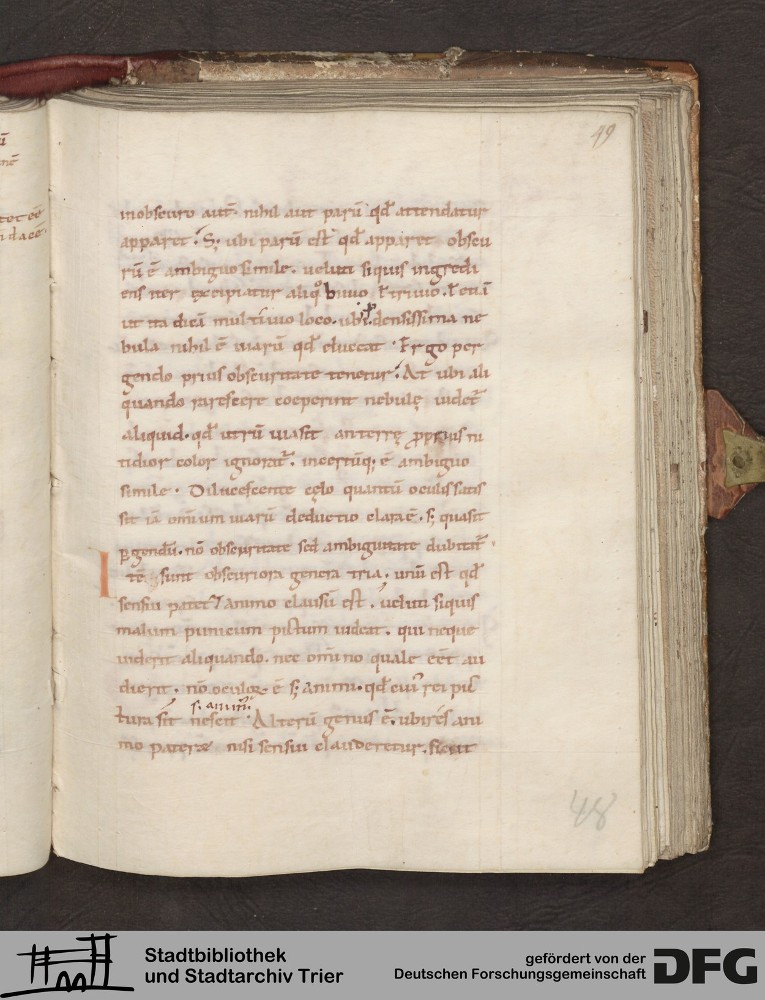 49
inobscuro aut̄. nihil aut parū qđ attendatur
apparet. S; ubi parū est qđ apparet obscu
rū ē ambiguo simile. ueluti siquis ingredi
ens iter excipiatur aliqͦ biuio. ł triuio. ł etiā
ut ita dicā multiuio loco. ubi densissima ne
bula nihil ē uiarū qđ eluceat. Ergo per
gendo prius obscuritate tenetur. At ubi ali
quando rarescere coeperint nebulę uidet̄
aliquid. qđ utrū uiasit anterrę ꝓprius ni
tidior color ignorat̄. incertūq; ē ambiguo
simile. Dilucescente cęlo quantū oculis satis
sit iā omīum uiarū deductio claraē. s; quasit
ꝑgendū. nō obscuritate sed ambiguitate dubitat̄.
Itē sunt obscuriora genera tria. unū est qđ
sensui patet. animo clausū est. ueluti siquis
malum punicum pictum uideat. qui neque
uiderit aliquando. nec omīno quale eēt au
dierit. nō oculorꝫ ē s; animi. qđ cui' rei pic
s. anim'
tura sit nescit. Alterū genus ē. ubi res ani
mo pateret nisi sensui clauderetur. sicut
48
Stadtbibliothek
und Stadtarchiv Trier
gefördert von der
Deutschen Forschungsgemeinschaft
DFG